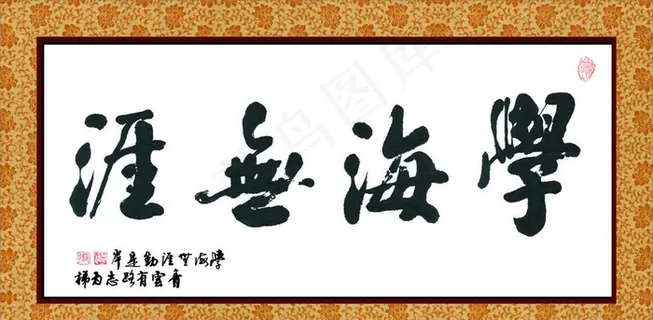 學海無涯
學海無涯勤是岸
青雲有路志為梯